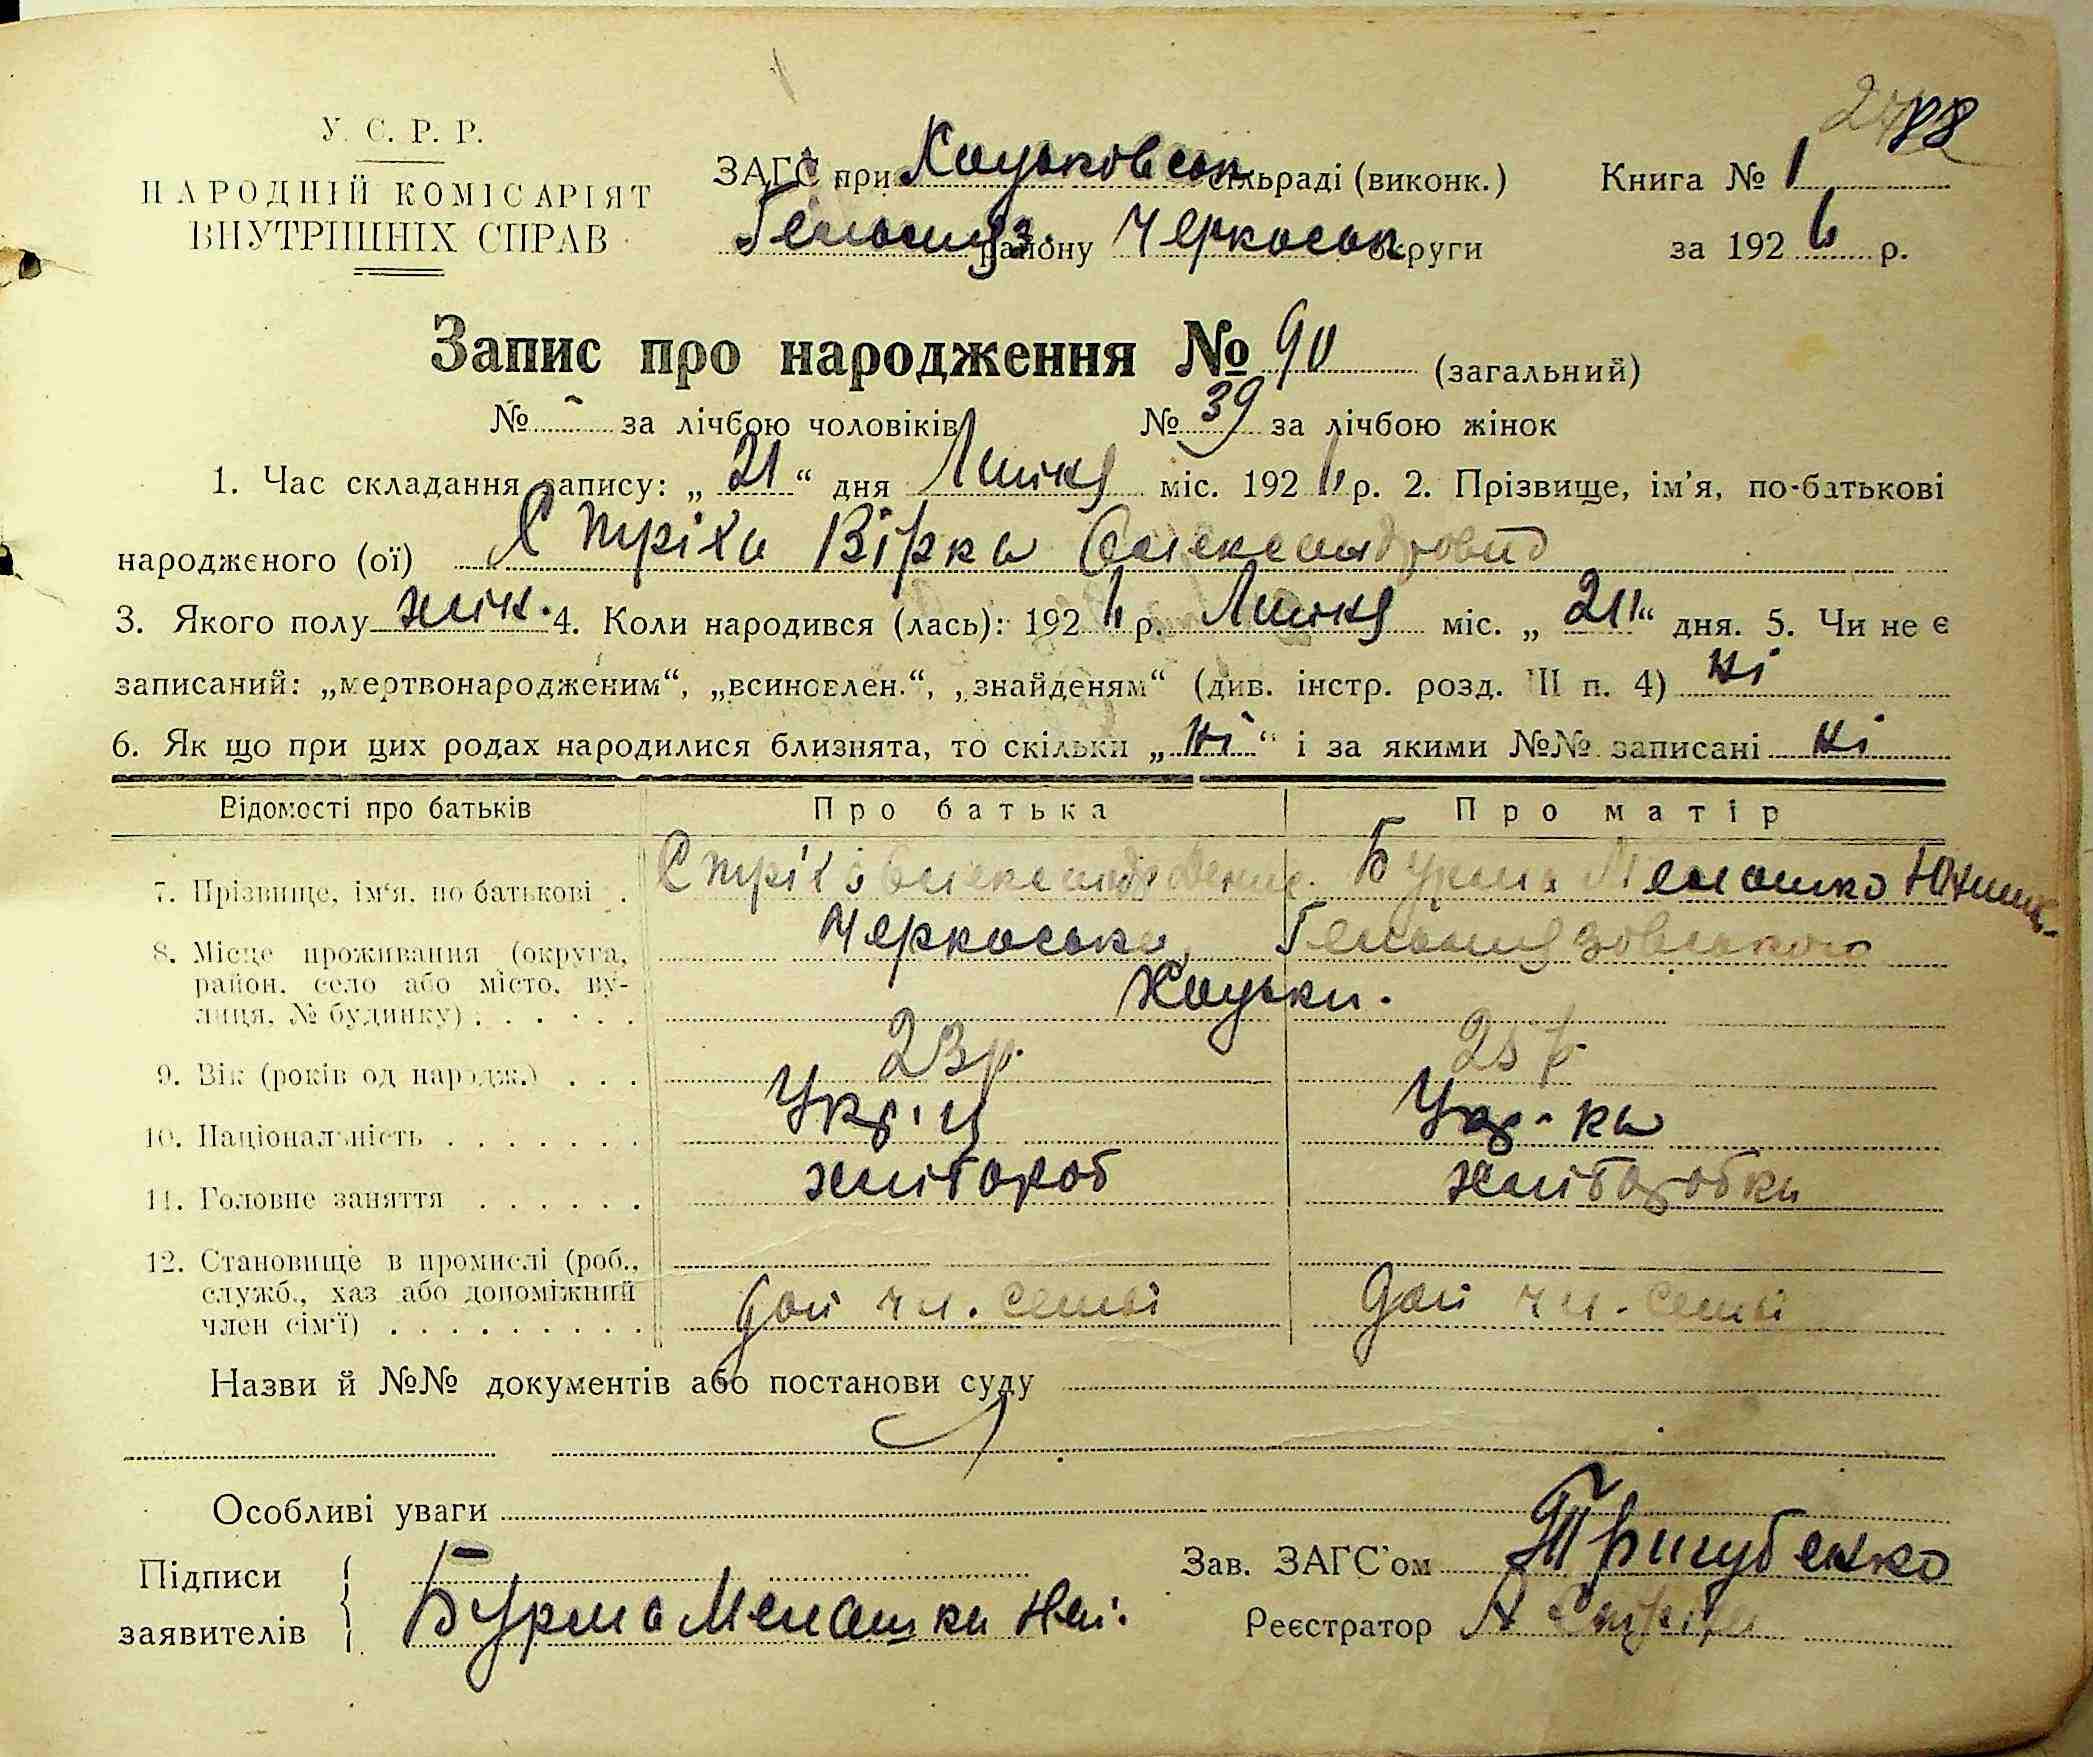 88
У. С. Р. Р.
НАРОДНІЙ КОМІСАРІЯТ
ВНУТРІШНІХ СПРАВ
ЗАГС при Хоцьковськ сільраді (виконк.) Книга № 1
Гельмяз. району Черкаськ округи за 1926 р.
Запис про народження № 90 (загальний)
№ - за лічбою чоловіків № 39 за лічбою жінок
1. Час складання запису: „21“ дня Липня міс. 1926 р. 2. Прізвище, ім'я, по-батькові
народженого (ої) Стріха Вірка Олександровна
3. Якого полу жін. 4. Коли народився (лась): 1926 р. Липня міс. „21“ дня. 5. Чи не є
записаний: „мертвонародженим“, „всиновлен.“, „знайденям“ (див. інстр. розд. III п. 4) ні
6. Як що при цих родах народилися близнята, то скільки „ні“ і за якими №№ записані ні
Відомості про батьків Про батька Про матір
7. Прізвище, ім'я, по батькові . Стріха Олександр Бурма Мелашка
8. Місце проживання (округа, Черкаська, Гельмязовського
район, село або місто, ву-
лиця, № будинку) . . . . . . Хоцьки.
9. Вік (років од народж.) . . . 23 р. 25 р.
10. Національність . . . . . . . Укр-ц Укр-ка
11. Головне заняття . . . . . . хлібороб хліборобка
12. Становище в промислі (роб.,
служб., хаз або допоміжний
член сім'ї) . . . . . . . . . доп чл. семьї доп чл. семьї
Назви й №№ документів або постанови суду
Особливі уваги
Підписи
заявителів Бурма Мелашка Неп.
Зав. ЗАГС'ом Тригубенко
Реєстратор